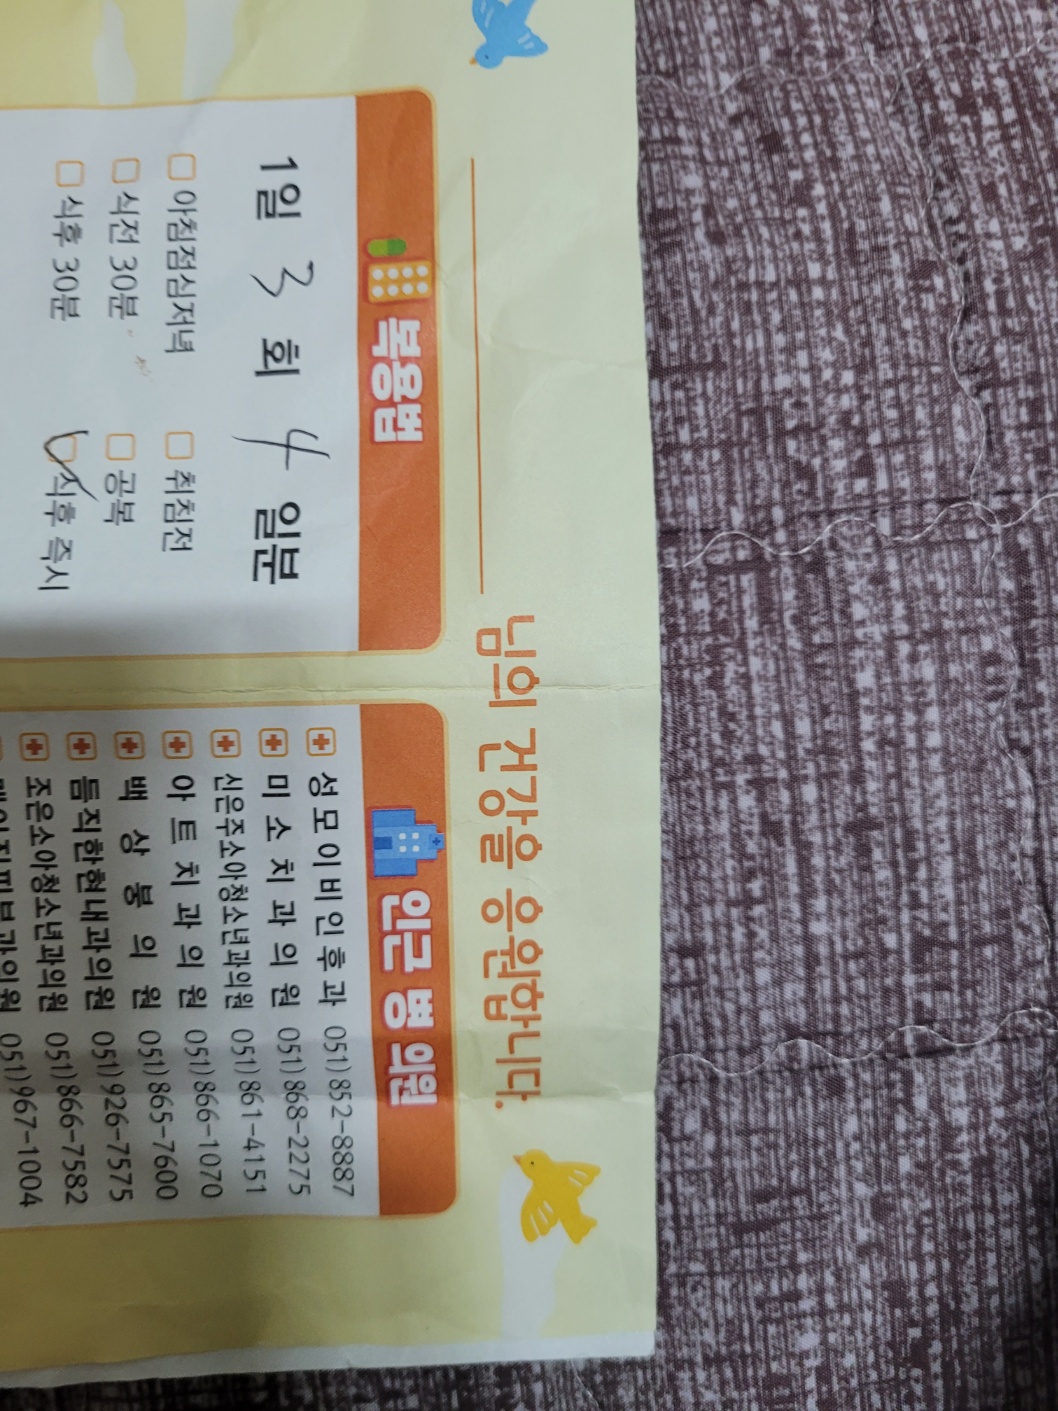 님의 건강을 응원합니다.
복용법
1일 3 회 4 일분
아침점심저녁 취침전
식전 30분 공복
식후 30분 식후 즉시
인근 병 의원
성모이비인후과 051)852-8887
미소치과의원 051)868-2275
신은주소아청소년과의원 051)861-4151
아트치과의원 051)866-1070
백상봉의원 051)865-7600
듬직한현내과의원 051)926-7575
조은소아청소년과의원 051)866-7582
피부과의원 051)967-1004